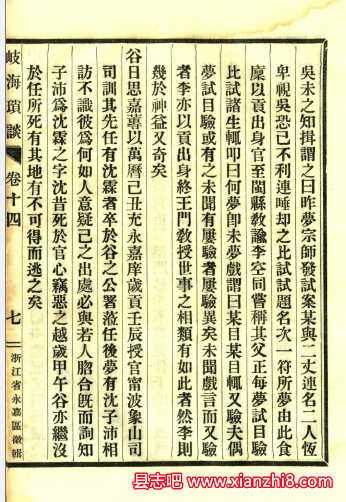 吳未之知揖謂之曰昨夢宗師發試案某與二丈連名二人恆
卑視吳恐己不利連唾却之比試試題名次一符所夢由此食
廩以貢出身官至閩縣教諭李空同嘗稱其父正每夢試目驗
比試諸生輒叩曰何夢卽未夢戲謂曰某目某目輒又驗夫偶
夢試目驗或有之未聞有屢驗者屢驗異矣未聞戲言而又驗
者李亦以貢出身終王門教授世事之相類有如此者然李則
幾於神益又奇矣
谷日思嘉蓴以萬曆己丑充永嘉庠歲貢壬辰授官甯波象山司
司訓其先任有沈霖者卒於谷之公署蒞任後夢有沈子沛相
訪不識彼爲何如人意疑己之出處必與若人脗合旣而詢知
子沛爲沈霖之字沈昔死於官心竊惡之越歲甲午谷亦繼沒
於任所死有其地有不可得而逃之矣
岐海瑣談
卷十四
七
浙江省永嘉區徵輯
县志吧-www.xianzhi8.com